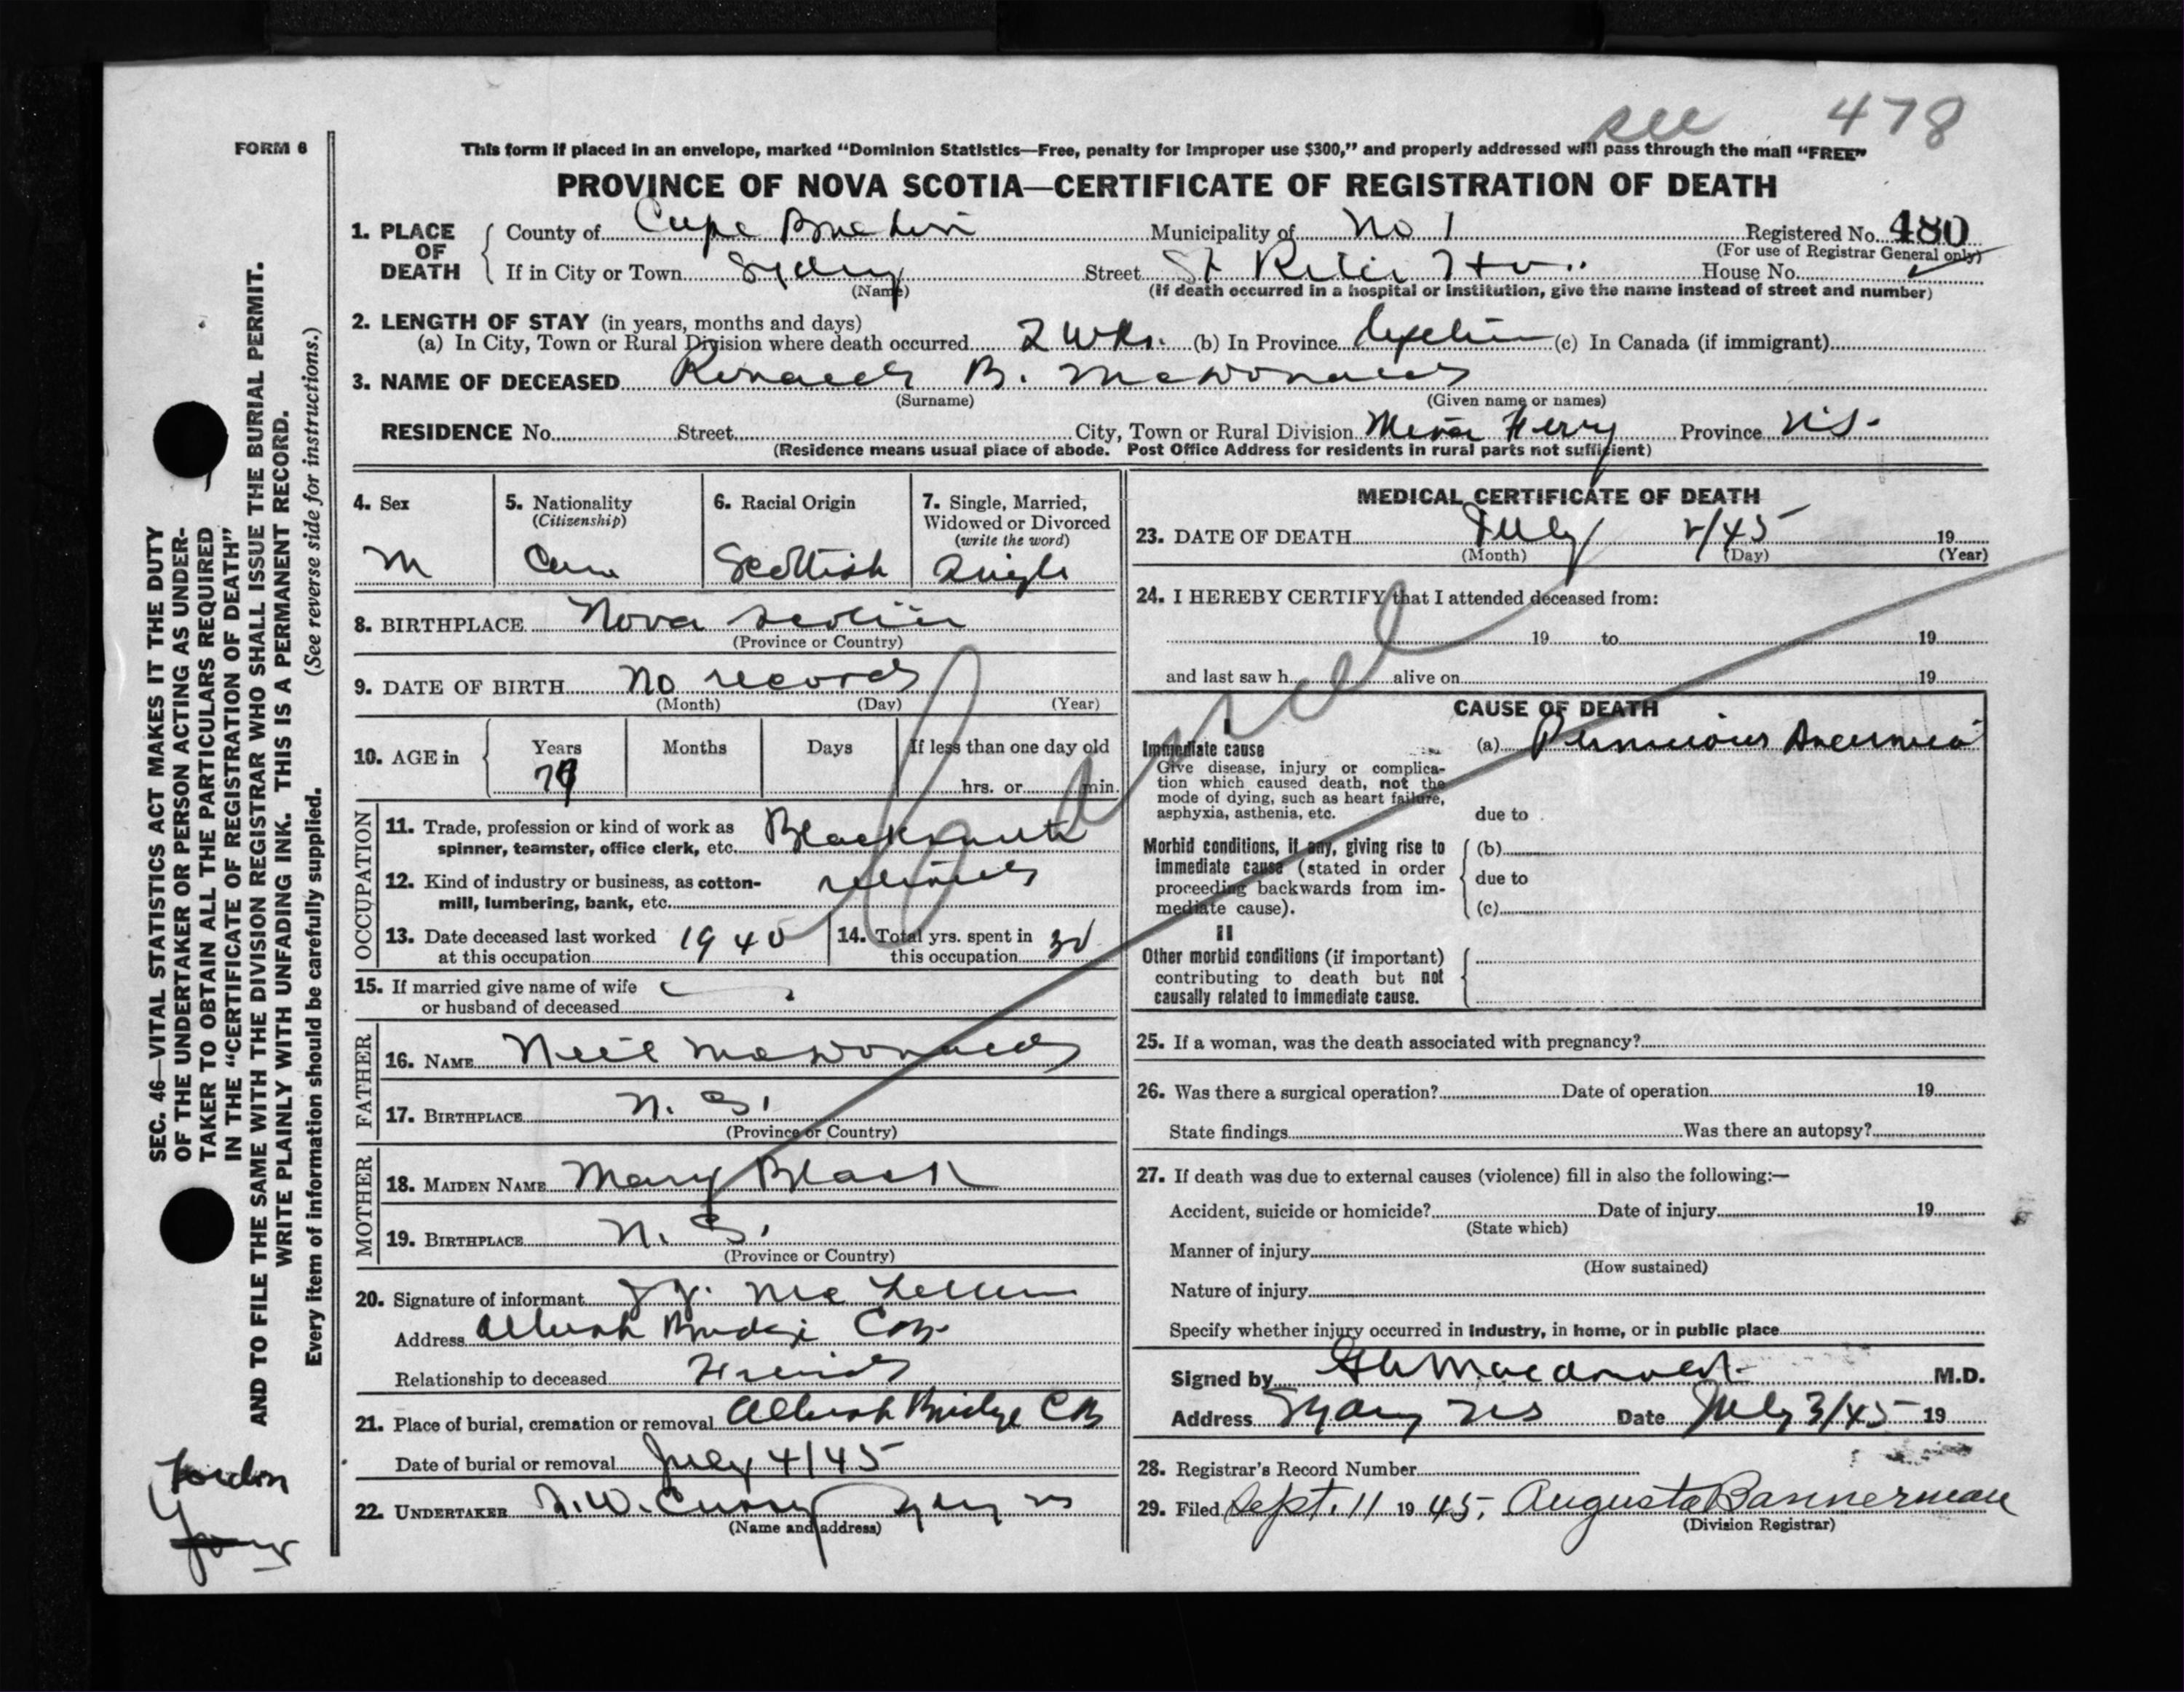 see 478
FORM 6
This form if placed in an envelope, marked "Dominion Statistics—Free, penalty for improper use $300," and properly addressed will pass through the mail "FREE"
PROVINCE OF NOVA SCOTIA—CERTIFICATE OF REGISTRATION OF DEATH
1. PLACE OF DEATH
County of Cape Breton Municipality of No 1 Registered No. 480
(For use of Registrar General only)
If in City or Town Sydney Street St Rita Hos. House No.
(Name) (If death occurred in a hospital or institution, give the name instead of street and number)
2. LENGTH OF STAY (in years, months and days)
(a) In City, Town or Rural Division where death occurred 2 wks. (b) In Province Lifetime (c) In Canada (if immigrant)
3. NAME OF DECEASED Ronald B. McDonald
(Surname) (Given name or names)
RESIDENCE No. Street City, Town or Rural Division Mira Ferry Province N.S.
(Residence means usual place of abode. Post Office Address for residents in rural parts not sufficient)
4. Sex
M
5. Nationality
(Citizenship)
Can
6. Racial Origin
Scottish
7. Single, Married,
Widowed or Divorced
(write the word)
Single
8. BIRTHPLACE Nova Scotia
(Province or Country)
9. DATE OF BIRTH No record
(Month) (Day) (Year)
10. AGE in
Years Months Days If less than one day old
hrs. or min.
OCCUPATION
11. Trade, profession or kind of work as
spinner, teamster, office clerk, etc. Blacksmith
12. Kind of industry or business, as cotton-
mill, lumbering, bank, etc. retired
13. Date deceased last worked
at this occupation 1940
14. Total yrs. spent in
this occupation 30
15. If married give name of wife
or husband of deceased
FATHER
16. NAME Neil McDonald
17. BIRTHPLACE N. S.
(Province or Country)
MOTHER
18. MAIDEN NAME Mary Black
19. BIRTHPLACE N. S.
(Province or Country)
20. Signature of informant J. J. McLellan
Address Albert Bridge C.B.
Relationship to deceased Friend
21. Place of burial, cremation or removal Albert Bridge CB
Date of burial or removal July 4/45
22. UNDERTAKER W. Curry Sydney NS
(Name and address)
MEDICAL CERTIFICATE OF DEATH
23. DATE OF DEATH July 2/45 19
(Month) (Day) (Year)
24. I HEREBY CERTIFY that I attended deceased from:
19 to 19
and last saw h alive on 19
CAUSE OF DEATH
I
Immediate cause (a) Pernicious Anaemia
Give disease, injury or complica-
tion which caused death, not the
mode of dying, such as heart failure,
asphyxia, asthenia, etc. due to
Morbid conditions, if any, giving rise to (b)
immediate cause (stated in order due to
proceeding backwards from im-
mediate cause). (c)
II
Other morbid conditions (if important)
contributing to death but not
causally related to immediate cause.
25. If a woman, was the death associated with pregnancy?
26. Was there a surgical operation? Date of operation 19
State findings Was there an autopsy?
27. If death was due to external causes (violence) fill in also the following:—
Accident, suicide or homicide? Date of injury 19
(State which)
Manner of injury
(How sustained)
Nature of injury
Specify whether injury occurred in industry, in home, or in public place
Signed by Macdonald M.D.
Address Sydney NS Date July 3/45 19
28. Registrar's Record Number
29. Filed Sept. 11 1945, Augusta Bannerman
(Division Registrar)
SEC. 46—VITAL STATISTICS ACT MAKES IT THE DUTY
OF THE UNDERTAKER OR PERSON ACTING AS UNDER-
TAKER TO OBTAIN ALL THE PARTICULARS REQUIRED
IN THE "CERTIFICATE OF REGISTRATION OF DEATH"
AND TO FILE THE SAME WITH THE DIVISION REGISTRAR WHO SHALL ISSUE THE BURIAL PERMIT.
WRITE PLAINLY WITH UNFADING INK. THIS IS A PERMANENT RECORD.
Every item of information should be carefully supplied. (See reverse side for instructions.)